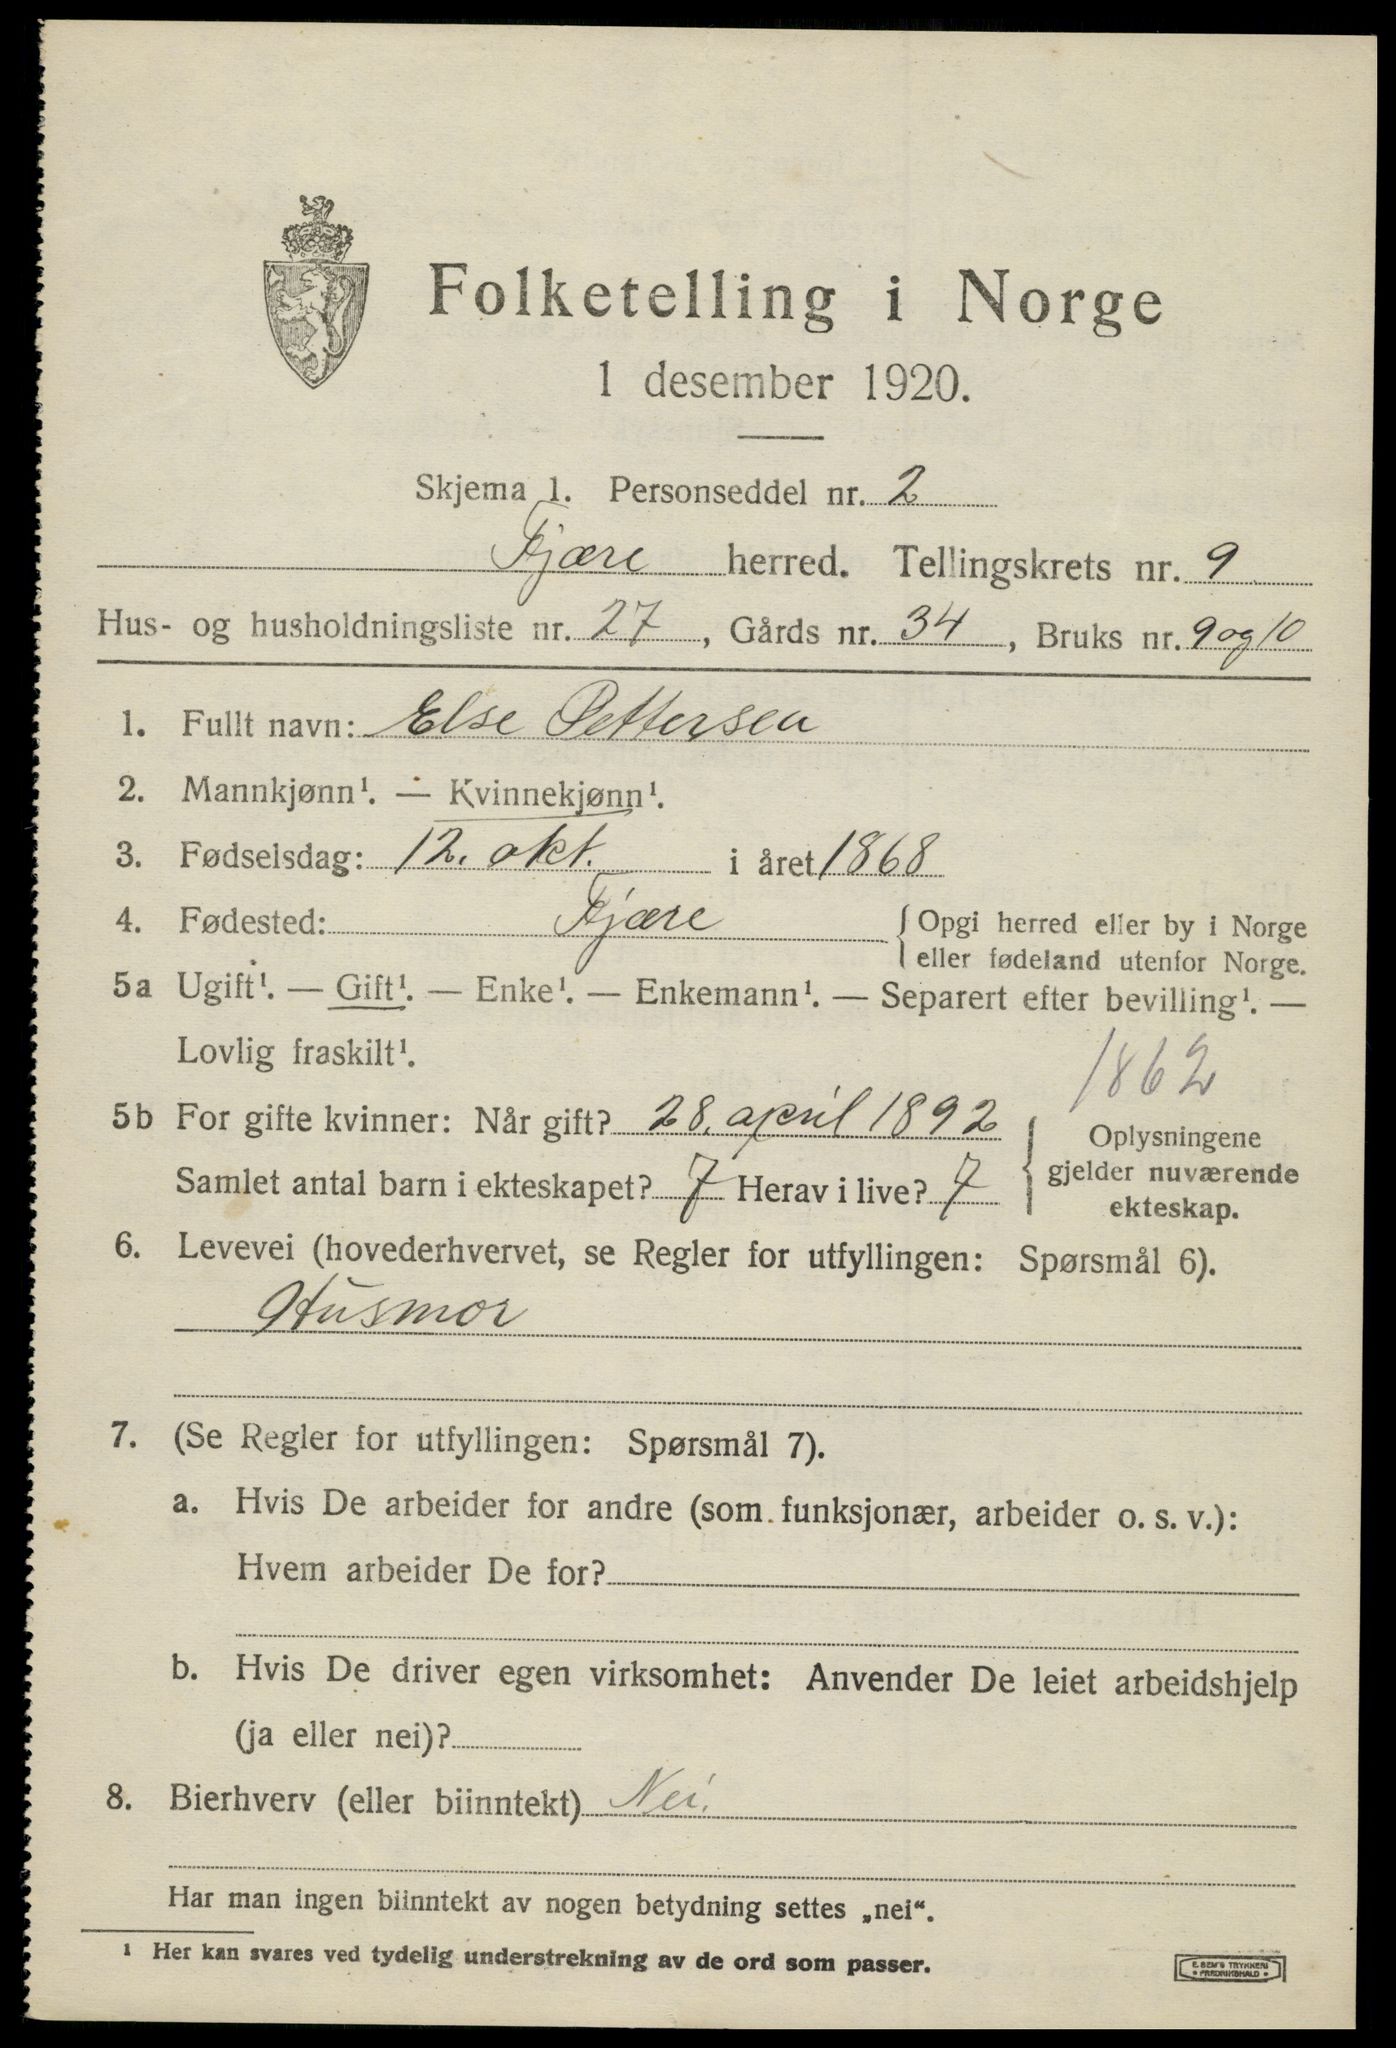 Folketelling i Norge
1 desember 1920.
Skjema 1. Personseddel nr. 2
Fjære herred. Tellingskrets nr. 9
Hus- og husholdningsliste nr. 27, Gårds nr. 34, Bruks nr. 9 og 10
1. Fullt navn: Else Pettersen
2. Mannkjønn¹. — Kvinnekjønn¹.
3. Fødselsdag: 12. okt. i året 1868
4. Fødested: Fjære { Opgi herred eller by i Norge
eller fødeland utenfor Norge.
5a Ugift¹. — Gift¹. — Enke¹. — Enkemann¹. — Separert efter bevilling¹. —
Lovlig fraskilt¹.
1862
5b For gifte kvinner: Når gift? 28. april 1892 { Oplysningene
gjelder nuværende
ekteskap.
Samlet antal barn i ekteskapet? 7 Herav i live? 7
6. Levevei (hovederhvervet, se Regler for utfyllingen: Spørsmål 6).
Husmor
7. (Se Regler for utfyllingen: Spørsmål 7).
a. Hvis De arbeider for andre (som funksjonær, arbeider o. s. v.):
Hvem arbeider De for?
b. Hvis De driver egen virksomhet: Anvender De leiet arbeidshjelp
(ja eller nei)?
8. Bierhverv (eller biinntekt) Nei.
Har man ingen biinntekt av nogen betydning settes „nei“.
¹ Her kan svares ved tydelig understrekning av de ord som passer.
E. SEM'S TRYKKERI
• FREDRIKSHALD •